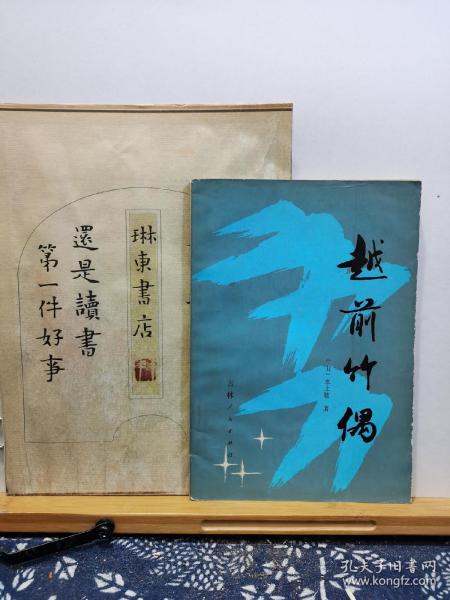 琳東書店
還是讀書
第一件好事
越前竹偶
〔日〕水上勉 著
吉林人民出版社
孔夫子旧书网
kongfz.com